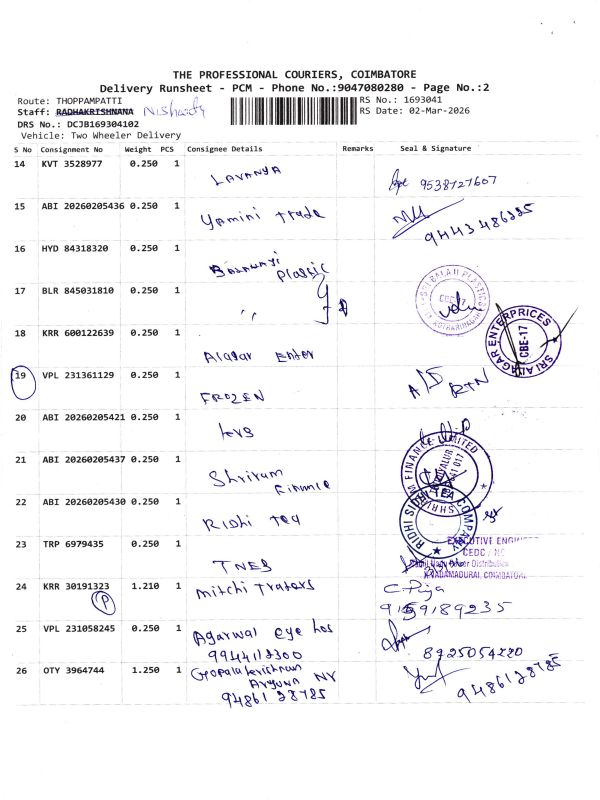 THE PROFESSIONAL COURIERS, COIMBATORE
Delivery Runsheet - PCM - Phone No.:9047080280 - Page No.:2
Route: THOPPAMPATTI
RS No.: 1693041
Staff: RADHAKRISHNANA
RS Date: 02-Mar-2026
DRS No.: DCJB169304102
Vehicle: Two Wheeler Delivery
S No Consignment No Weight PCS Consignee Details Remarks Seal & Signature
14 KVT 3528977 0.250 1 LAVANYA 9538727607
15 ABI 20260205436 0.250 1 Yamini Trade 9443486225
16 HYD 84318320 0.250 1 Plassic
17 BLR 845031810 0.250 1 ,,
SRI BALAJI PLASTIC
CBE-17
SRI ALAGAR ENTERPRICES
CBE-17
18 KRR 600122639 0.250 1 Alagar Enter
19 VPL 231361129 0.250 1 FROZEN A/S RTN
20 ABI 20260205421 0.250 1
21 ABI 20260205437 0.250 1 Shriram Finance
FINANCE LIMITED
641 017
22 ABI 20260205430 0.250 1 Ridhi Tea
RIDHI SIDHI TEA COMPANY
23 TRP 6979435 0.250 1 TNEB
EXECUTIVE ENGINEER
CEDC / NO
Tamil Nadu Power Distribution
VADAMADURAI, COIMBATORE
24 KRR 30191323 1.210 1 Mitchi Traters C. Puja
P
9159189235
25 VPL 231058245 0.250 1 Agarwal eye hos
9944118300 8925054220
26 OTY 3964744 1.250 1 Gopalakrishnan
9486128785 9486128785